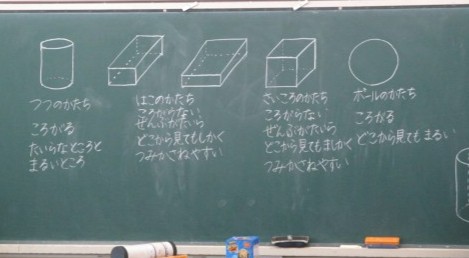 つつのかたち
ころがる
たいらなところと
まるいところ
はこのかたち
ころがらない
ぜんぶがたいら
どこから見てもしかく
つみかさねやすい
さいころのかたち
ころがらない
ぜんぶがたいら
どこから見てもましかく
つみかさねやすい
ボールのかたち
ころがる
どこから見てもまるい